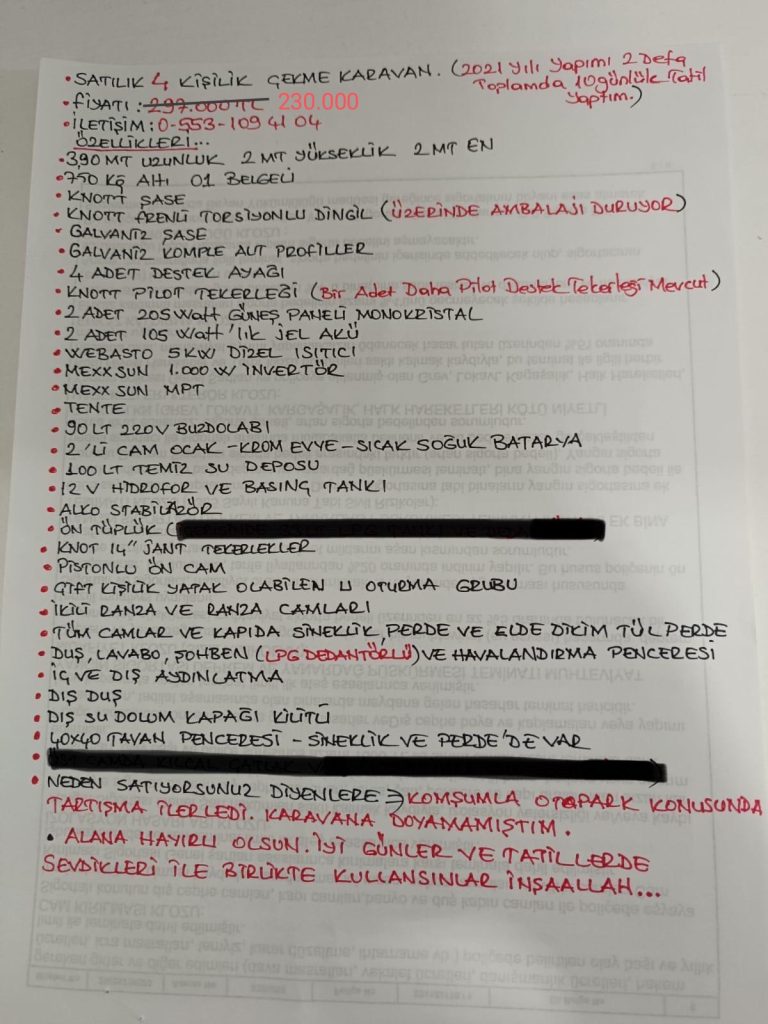 • SATILIK 4 KİŞİLİK ÇEKME KARAVAN. (2021 yılı yapımı 2 Defa
Toplamda 10 günlük Tatil
yaptım.)
• FİYATI : 297.000 TL 230.000
• İLETİŞİM: 0-553-109 41 04
ÖZELLİKLERİ...
• 3,90 MT UZUNLUK 2 MT YÜKSEKLİK 2 MT EN
• 750 Kg Altı O1 BELGELİ
• KNOTT ŞASE
• KNOTT FRENLİ TORSİYONLU DİNGİL (ÜZERİNDE AMBALAJI DURUYOR)
• GALVANİZ ŞASE
• GALVANİZ KOMPLE ALT PROFİLLER
• 4 ADET DESTEK AYAĞI
• KNOTT PİLOT TEKERLEĞİ (Bir Adet Daha Pilot Destek Tekerleği Mevcut)
• 2 ADET 205 Watt GÜNEŞ PANELİ MONOKRİSTAL
• 2 ADET 105 Watt'lık JEL AKÜ
• WEBASTO 5 KW DİZEL ISITICI
• MEXXSUN 1.000 W İNVERTÖR
• MEXX SUN MPT
• TENTE
• 90 LT 220V BUZDOLABI
• 2'Lİ CAM OCAK - KROM EVYE - SICAK SOĞUK BATARYA
• 100 LT TEMİZ SU DEPOSU
• 12 V HİDROFOR VE BASINÇ TANKI
• ALKO STABİLAZÖR
• ÖN TÜPLÜK (
• KNOT 14" JANT TEKERLEKLER
• PİSTONLU ÖN CAM
• ÇİFT KİŞİLİK YATAK OLABİLEN U OTURMA GRUBU
• İKİLİ RANZA VE RANZA CAMLARI
• TÜM CAMLAR VE KAPIDA SİNEKLİK, PERDE VE ELDE DİKİM TÜL PERDE
• DUŞ, LAVABO, ŞOHBEN (LPG DEDANTÖRLÜ) VE HAVALANDIRMA PENCERESİ
• İÇ VE DIŞ AYDINLATMA
• DIŞ DUŞ
• DIŞ SU DOLUM KAPAĞI KİLİTLİ
• 40X40 TAVAN PENCERESİ - SİNEKLİK VE PERDE'DE VAR
•
• NEDEN SATIYORSUNUZ DİYENLERE → KOMŞUMLA OTOPARK KONUSUNDA
TARTIŞMA İLERLEDİ. KARAVANA DOYAMAMIŞTIM.
• ALANA HAYIRLI OLSUN. İYİ GÜNLER VE TATİLLERDE
SEVDİKLERİ İLE BİRLİKTE KULLANSINLAR İNŞAALLAH...